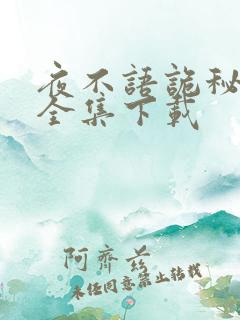 夜不語詭秘
全集下載
阿齊兹
未经同意禁止转载